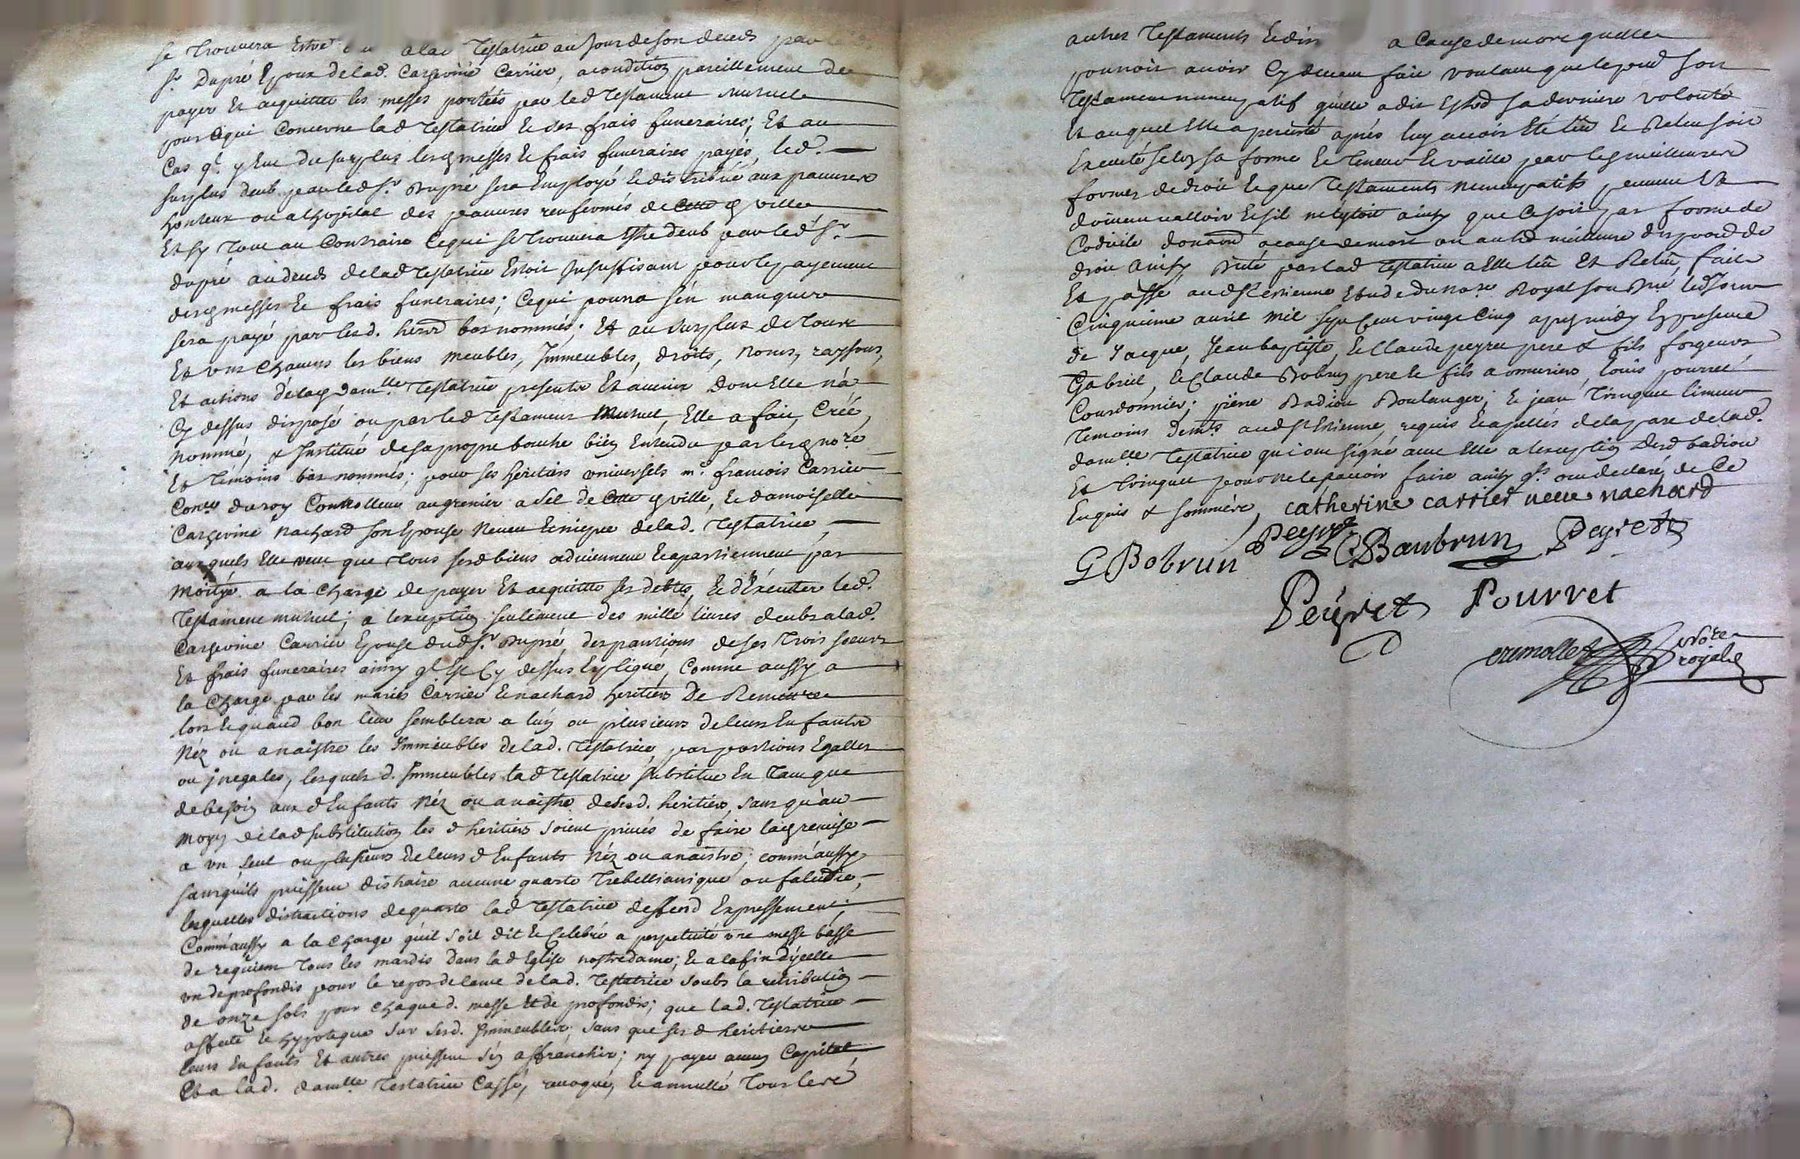 se trouvera estre a lad testatrice au jour de son deceds par le
sr. Dupré Epoux de lad. Catherine Carrier, a condition pareillement de
payer et acquitter les messes portées par led testament mutuel
pour ce qui concerne lad testatrice et ses frais funeraires; Et au
cas q. y eut du surplus lesq messes et frais funeraires payés, led.
surplus deub par led sr. Dupré sera Employé et distribué aux pauvres
honteux ou a lhopital des pauvres renfermés de cette ville
Et sy tout au contraire ce qui se trouvera estre deub par led sr.
dupré au deceds de lad testatrice Estoit Insuffisant pour le payement
desq messes et frais funeraires; ce qui pourra s'en manquer
sera payé par lesd. herers bas nommés. Et au surplus de tous
Et uns chacuns les biens meubles, Immeubles, droits, noms, raysons,
Et actions de lad damlle. testatrice presents et avenir dont Elle n'a
cy dessus disposé ou par led testament mutuel, Elle a fait, créé,
nommé, & Institué de sa propre bouche bien Entendu par lesq nore
Et temoins bas nommés; pour ses heritiers universels mr. francois Carrier
Coner du roy Controlleur au grenier a sel de cette ville, Et damoiselle
Catherine Nachard son Epouse neveu et niepce de lad. testatrice,
auxquels Elle veut que tous sesd biens adviennent et apartiennent par
moitye a la charge de payer Et acquitter ses debtes, Et d'Executer led.
testament mutuel; a lexception seulement des mille livres deubs a lad.
Catherine Carrier Epouse dud sr. Dupré, des pansions de ses trois soeurs
Et frais funeraires ainsy q. Est cy dessus Expliqué, comme aussy a
la charge par les mariés Carrier et nachard heritiers De Remettre
lors et quand bon leur semblera a l'un ou plusieurs de leurs Enfants
Néz ou a naistre les Immeubles de lad. testatrice par portions Egalles
ou jnegales, lesquels d. Immeubles lad testatrice substitue En tant que
de besoin aux d Enfants Néz ou a naistre desd. heritiers, sans qu'au
moyen de lad substitution les d heritiers soient privés de faire lad remise
a un seul ou plusieurs de leurs d Enfants Néz ou a naistre, comm'aussy
sans quils puissent distraire aucune quarte trebellianique ou falcidie,
lesquelles distractions de quarte lad testatrice deffend Expressement;
Comm'aussy a la charge qu'il soit dit et celebré a perpetuité une messe basse
de requiem tous les mardis dans lad Eglise nostredame; Et a la fin d'ycelle
un deprofondis pour le repos de lame de lad. testatrice soubs la retribution
de onze sols pour chaque d. messe et de profondis; que lad. testatrice
affecte et hypoteque sur sesd. Immeubles sans que ses d heritiers
leurs Enfants Et autres puissent s'en affranchir; ny payer aucun Capital
Et a lad. damlle. testatrice cassé, revoqué, Et annullé tous les
autres testaments a cause de mort quelle
pourroit avoir cy devant fait voulant que le present son
testament nuncupatif quelle a dit Estre sa derniere volonté
et auquel Elle a persisté aprés luy avoir Eté lu Et Relu soit
Executé selon sa forme Et teneur Et vaille par les meilleures
formes de droit Et que testaments nuncupatifs peuvent Et
doivent valloir Et s'il n'estoit ainsy que ce soit par forme de
Codicile donation a cause de mort ou autre meilleure disposon de
droit ainsy dicté par lad testatrice a Elle lu Et Relu fait
Et passé aud st Etienne Etude du nore Royal soubsigné led jour
Cinquieme avril mil sept cent vingt cinq apres midy En presence
de Jacque, Jean baptiste, Et Claude peyret pere & fils forgeurs
Gabriel, Et Claude Bobrun pere et fils armuriers Louis pourret
Courdonnier; pierre Badiou Boulanger; Et jean tringuet limeur
temoins demts. aud st Etienne, requis Et apellés de la part de lad.
damlle. testatrice qui ont signé avec Elle a lexception desd badiou
Et tringuet pour ne le pouvoir faire ainsy qls. ont declaré de ce
Enquis & sommés, catherine carrier veuve nachard
G Bobrun Peyret C Baubrun Peyret
Peyret Pourret
crimollet Note
royal